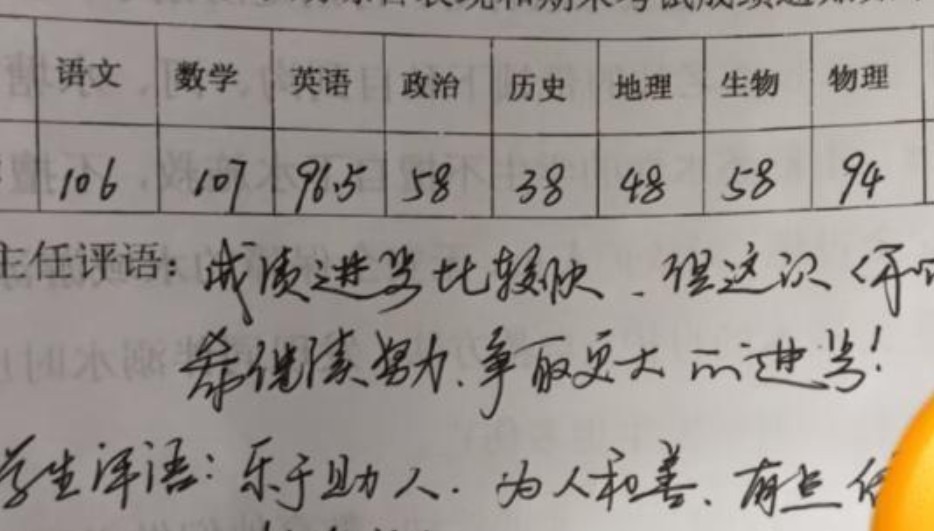 表现和期末考试成绩通知
语文 数学 英语 政治 历史 地理 生物 物理
106 107 96.5 58 38 48 58 94
主任评语：成绩进步比较快、但这次
希继续努力、争取更大的进步！
学生评语：乐于助人、为人和善、有点